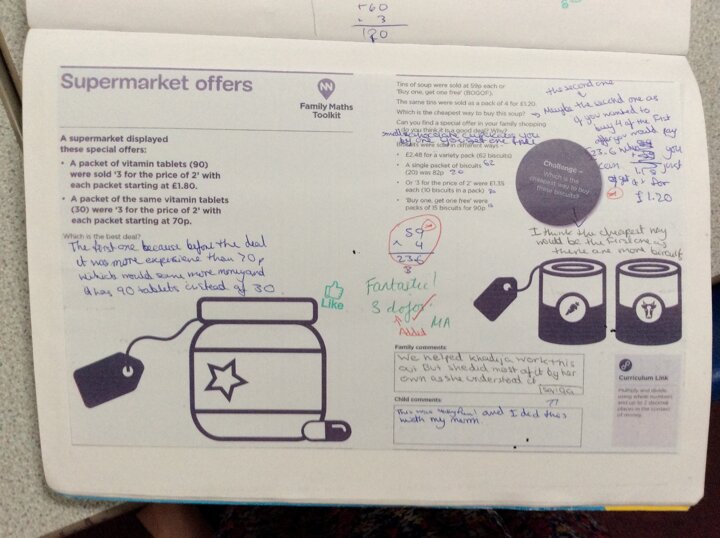 +60
× 3
180
Supermarket offers
NN
Family Maths
Toolkit
A supermarket displayed
these special offers:
• A packet of vitamin tablets (90)
were sold '3 for the price of 2' with
each packet starting at £1.80.
• A packet of the same vitamin
tablets (30) were '3 for the price of 2' with
each packet starting at 70p.
Which is the best deal?
The first one because before the deal
it was more expensive than 70p
which would save more money and
it has 90 tablets instead of 30.
Like
Tins of soup were sold at 59p each or
'Buy one, get one free' (BOGOF).
The same tins were sold as a pack of 4 for £1.20.
Which is the cheapest way to buy this soup?
the second one
Maybe the second one as
if you wanted to
buy 4 of the first
offer you would pay
23.6 you
can just
get it for
£1.20
Can you find a special offer in your family shopping
Do you think it is a good deal? Why?
small chocolate cupcakes you
buy one you get one free
Biscuits were sold in different ways -
• £2.48 for a variety pack (62 biscuits)
• A single packet of biscuits 62
(20) was 82p 20
• Or '3 for the price of 2' were £1.35
each (10 biscuits in a pack) 30
• 'Buy one, get one free' were
packs of 15 biscuits for 90p
Challenge –
Which is the
cheapest way to buy
these biscuits?
I think the cheapest way
would be the first one as
there are more biscuits
59
× 4
236
3
Fantastic!
3 dojos
Added
MA
Family comments:
We helped khadija work this
out But she did most of it by her
own as she understood it
Child comments:
This was very fun! and I did this
with my mum.
Curriculum Link
Multiply and divide
using whole numbers
and up to 2 decimal
places in the context
of money.